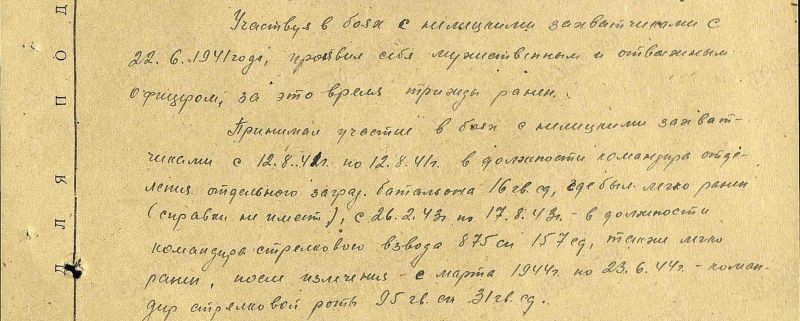 ДЛЯ ПОД
Участвуя в боях с немецкими захватчиками с
22.6.1941 года, проявил себя мужественным и отважным
офицером, за это время трижды ранен.
Принимал участие в боях с немецкими захват-
чиками с 12.8.42г. по 12.8.41г. в должности командира отде-
ления отдельного заград. батальона 16 гв. сд, где был легко ранен
(справки не имеет), с 26.2.43г. по 17.8.43г. - в должности
командира стрелкового взвода 875 сп 157 сд, также легко
ранен, после излечения - с марта 1944г. по 23.6.44г. - коман-
дир стрелковой роты 95 гв. сп 31 гв. сд.